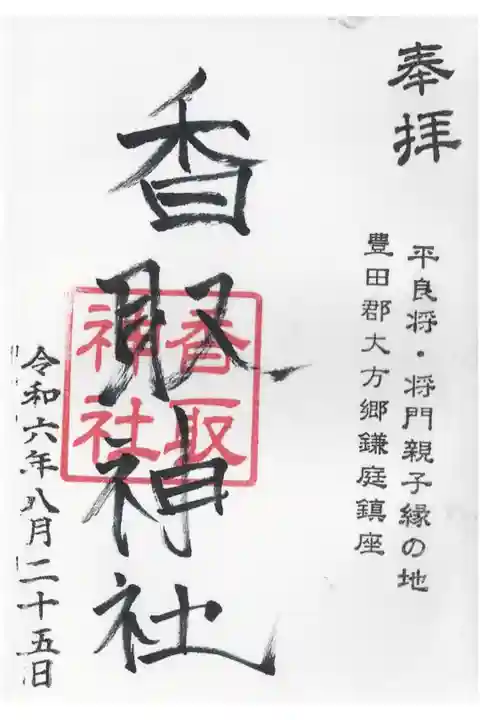 奉拝
平良将・将門親子縁の地
豊田郡大方郷鎌庭鎮座
香取神社
香取神社
令和六年八月二十五日